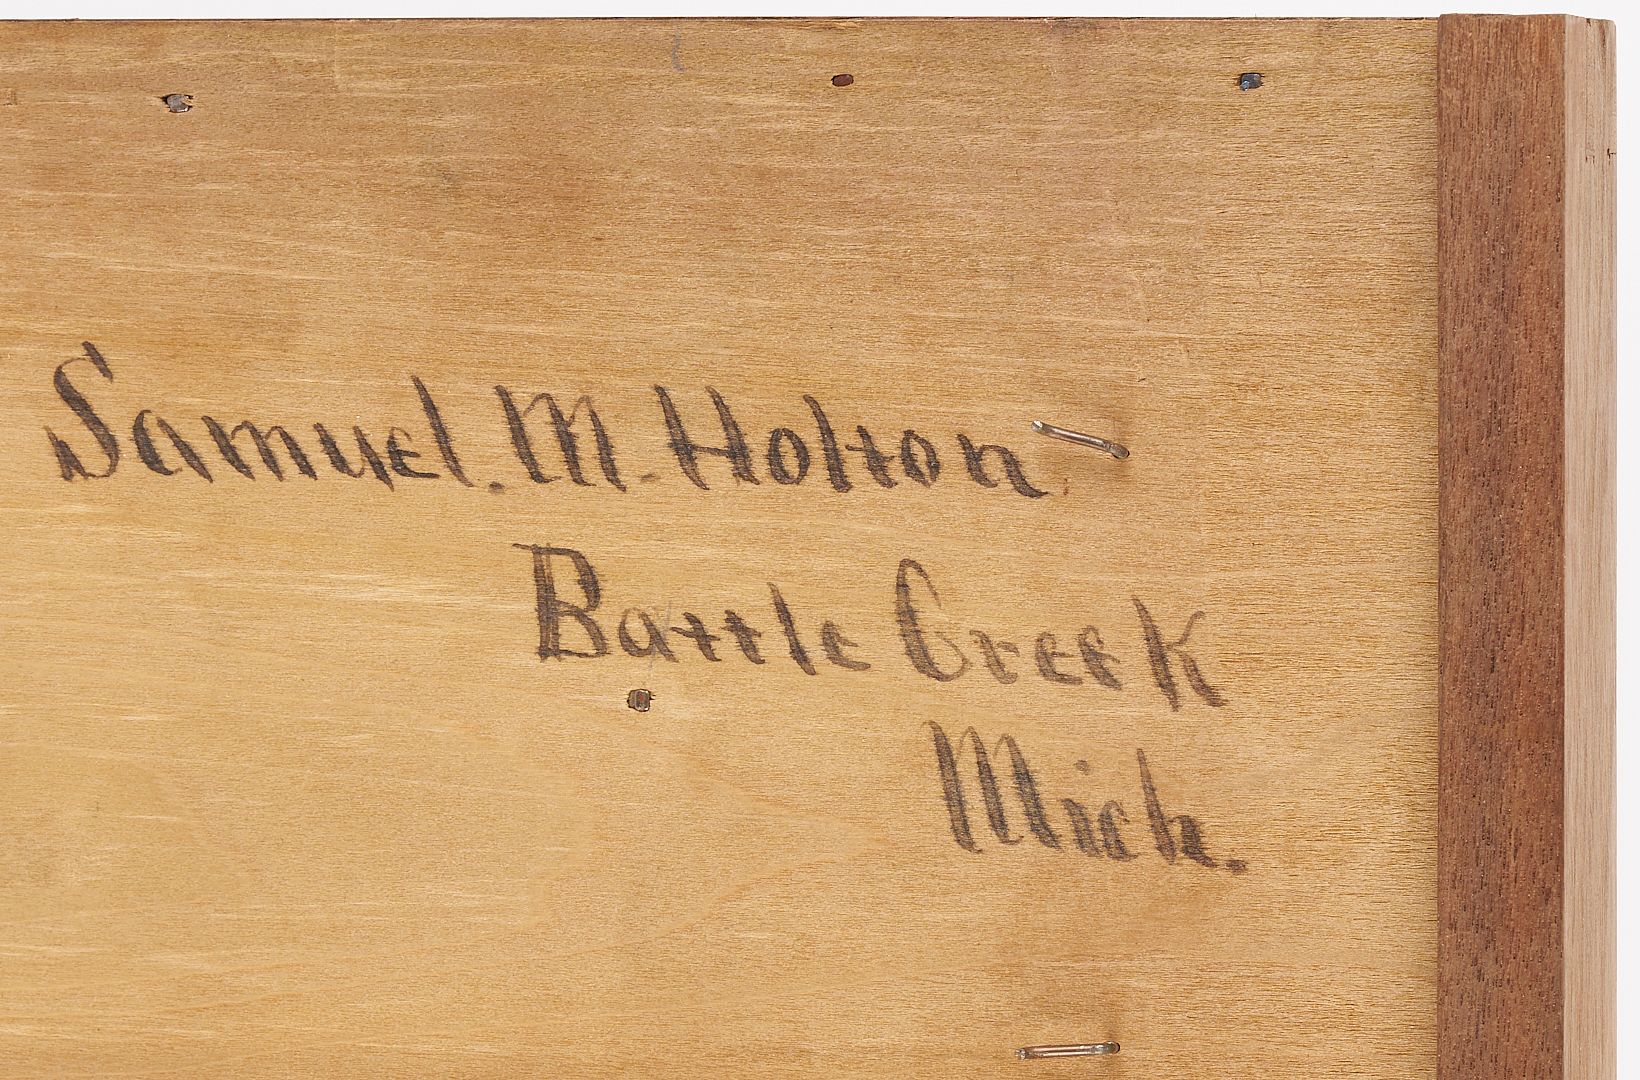 Samuel. M. Holton
Battle Creek
Mich.